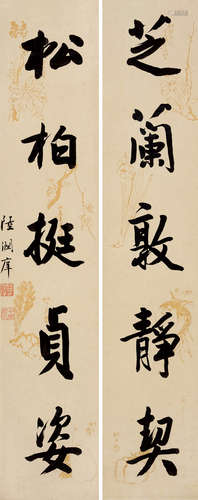 芝蘭敦靜契
松柏挺貞姿
陸潤庠